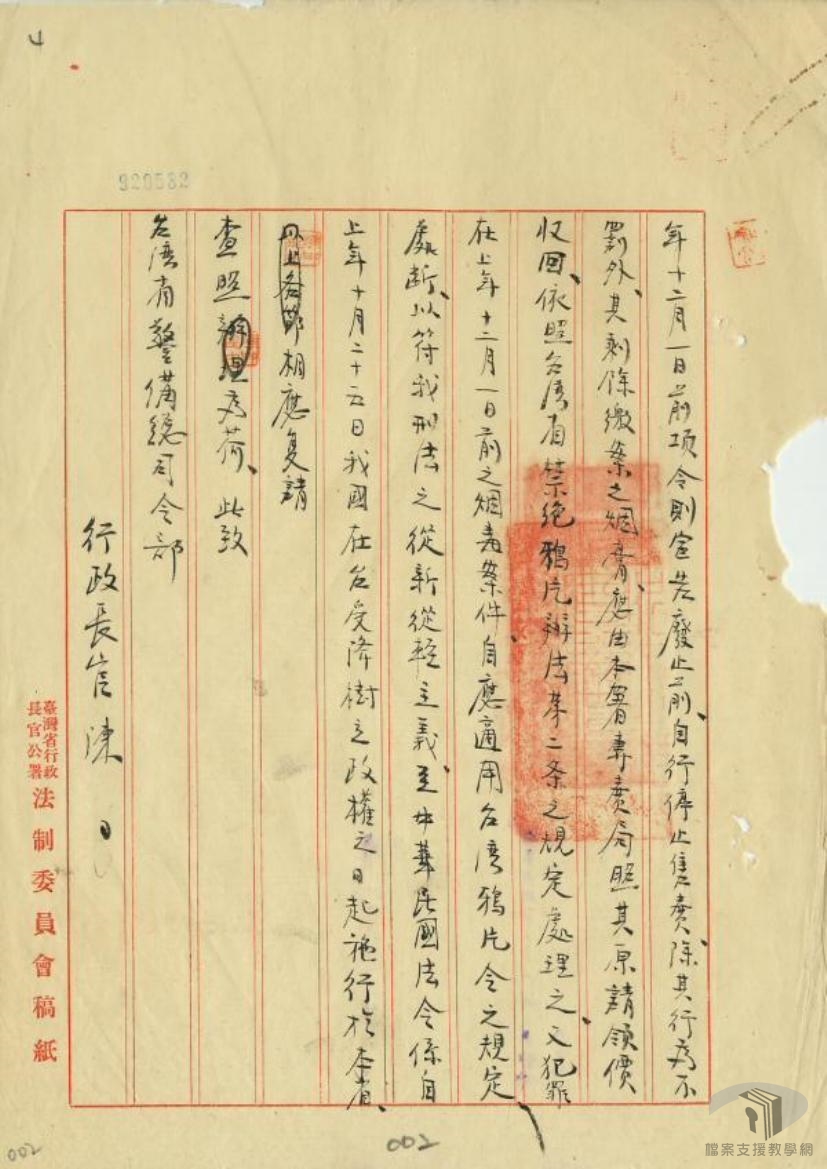 4
920532
年十二月一日前項令則宣告廢止前、自行停止售賣、除其行為不
罰外、其剩餘繳案之烟膏、應由本署專賣局照其原請領價
收回、依照台湾省禁绝鴉片辦法第二条之規定處理之又犯罪
在上年十二月一日前之烟毒案件、自應適用台湾鴉片令之規定
處断、以符我刑法之從新從輕主義、至中華民國法令係自
上年十月二十五日我國在台受降樹立政權之日起施行於本省、
以上各節相應复請
查照辦理為荷、此致
台湾省警備總司令部
行政長官陳
臺灣省行政長官公署法制委員會稿紙
002
002
檔案支援教學網